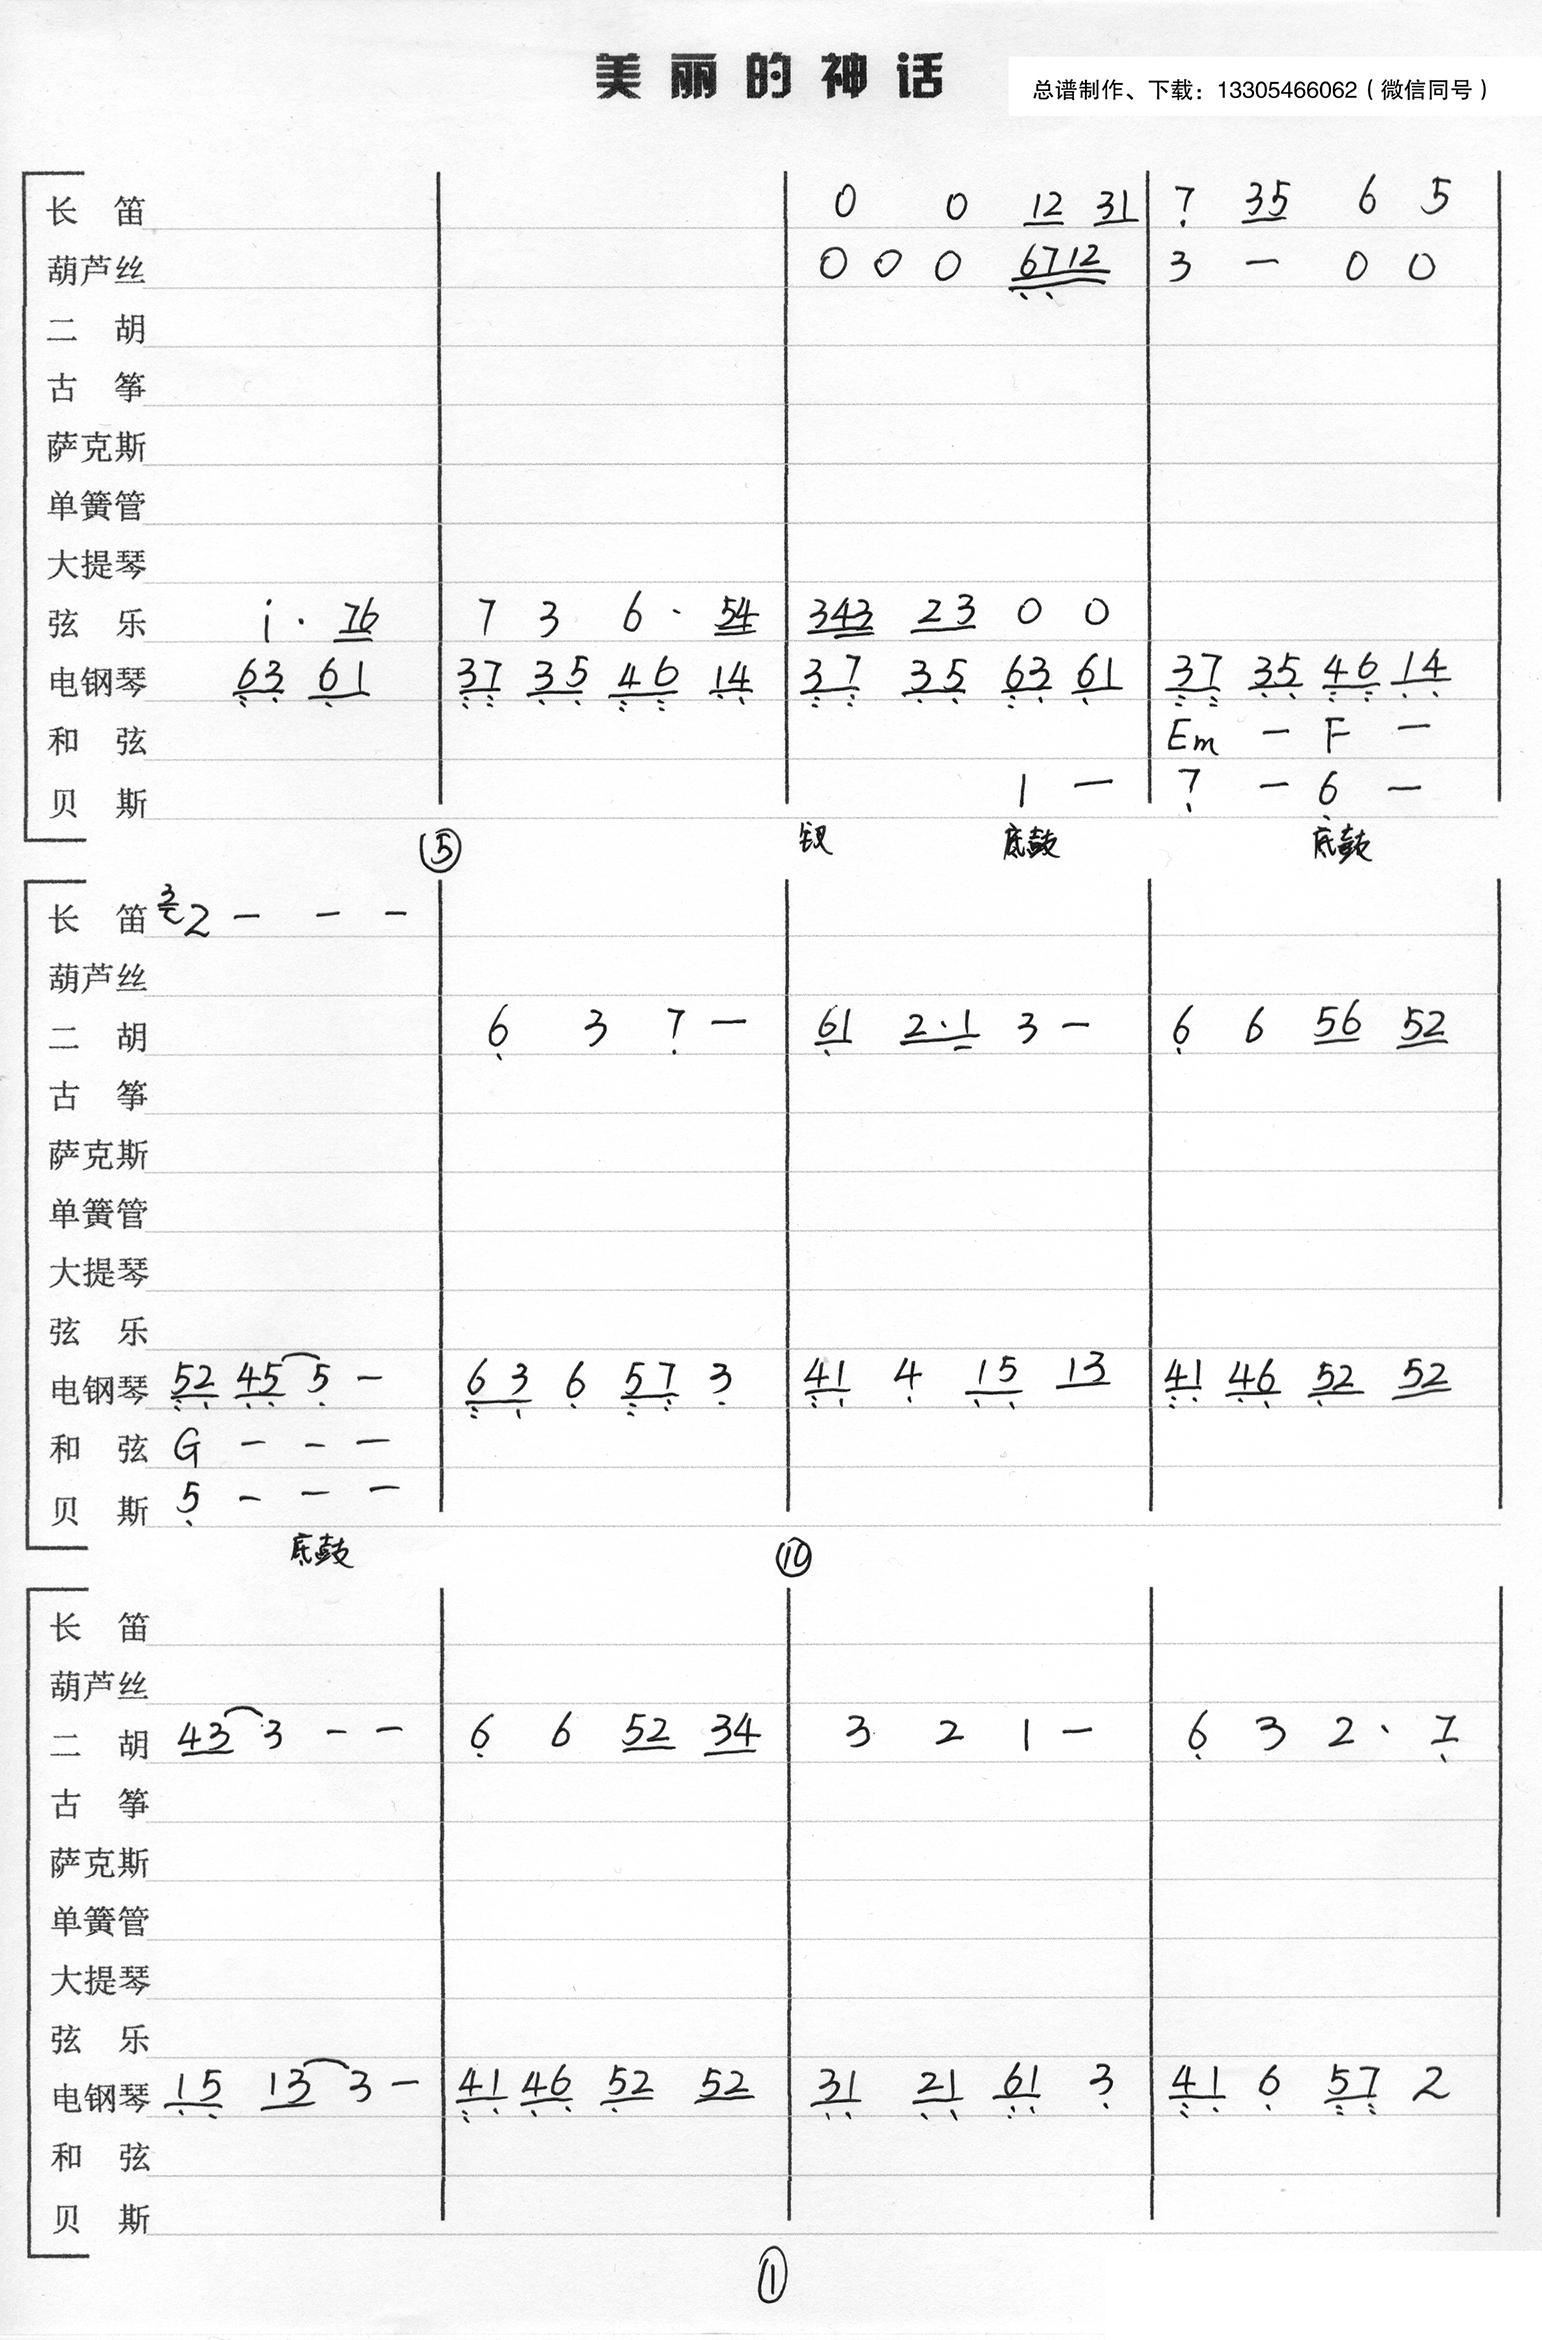 美丽的神话
总谱制作、下载：13305466062（微信同号）
长笛 0 0 12 31 7 35 6 5
葫芦丝 0 0 0 6712 3 — 0 0
二胡
古筝
萨克斯
单簧管
大提琴
弦乐 i· 76 7 3 6· 54 343 23 0 0
电钢琴 63 61 37 35 46 14 37 35 63 61 37 35 46 14
和弦 Em — F —
贝斯 1 — 7 — 6 —
⑤ 钗 底鼓 底鼓
长笛 3 2 — — —
葫芦丝
二胡 6 3 7 — 61 2·1 3 — 6 6 56 52
古筝
萨克斯
单簧管
大提琴
弦乐
电钢琴 52 45 5 — 63 6 57 3 41 4 15 13 41 46 52 52
和弦 G — — —
贝斯 5 — — —
底鼓 ⑩
长笛
葫芦丝
二胡 43 3 — — 6 6 52 34 3 2 1 — 6 3 2· 7
古筝
萨克斯
单簧管
大提琴
弦乐
电钢琴 15 13 3 — 41 46 52 52 31 21 61 3 41 6 57 2
和弦
贝斯
①